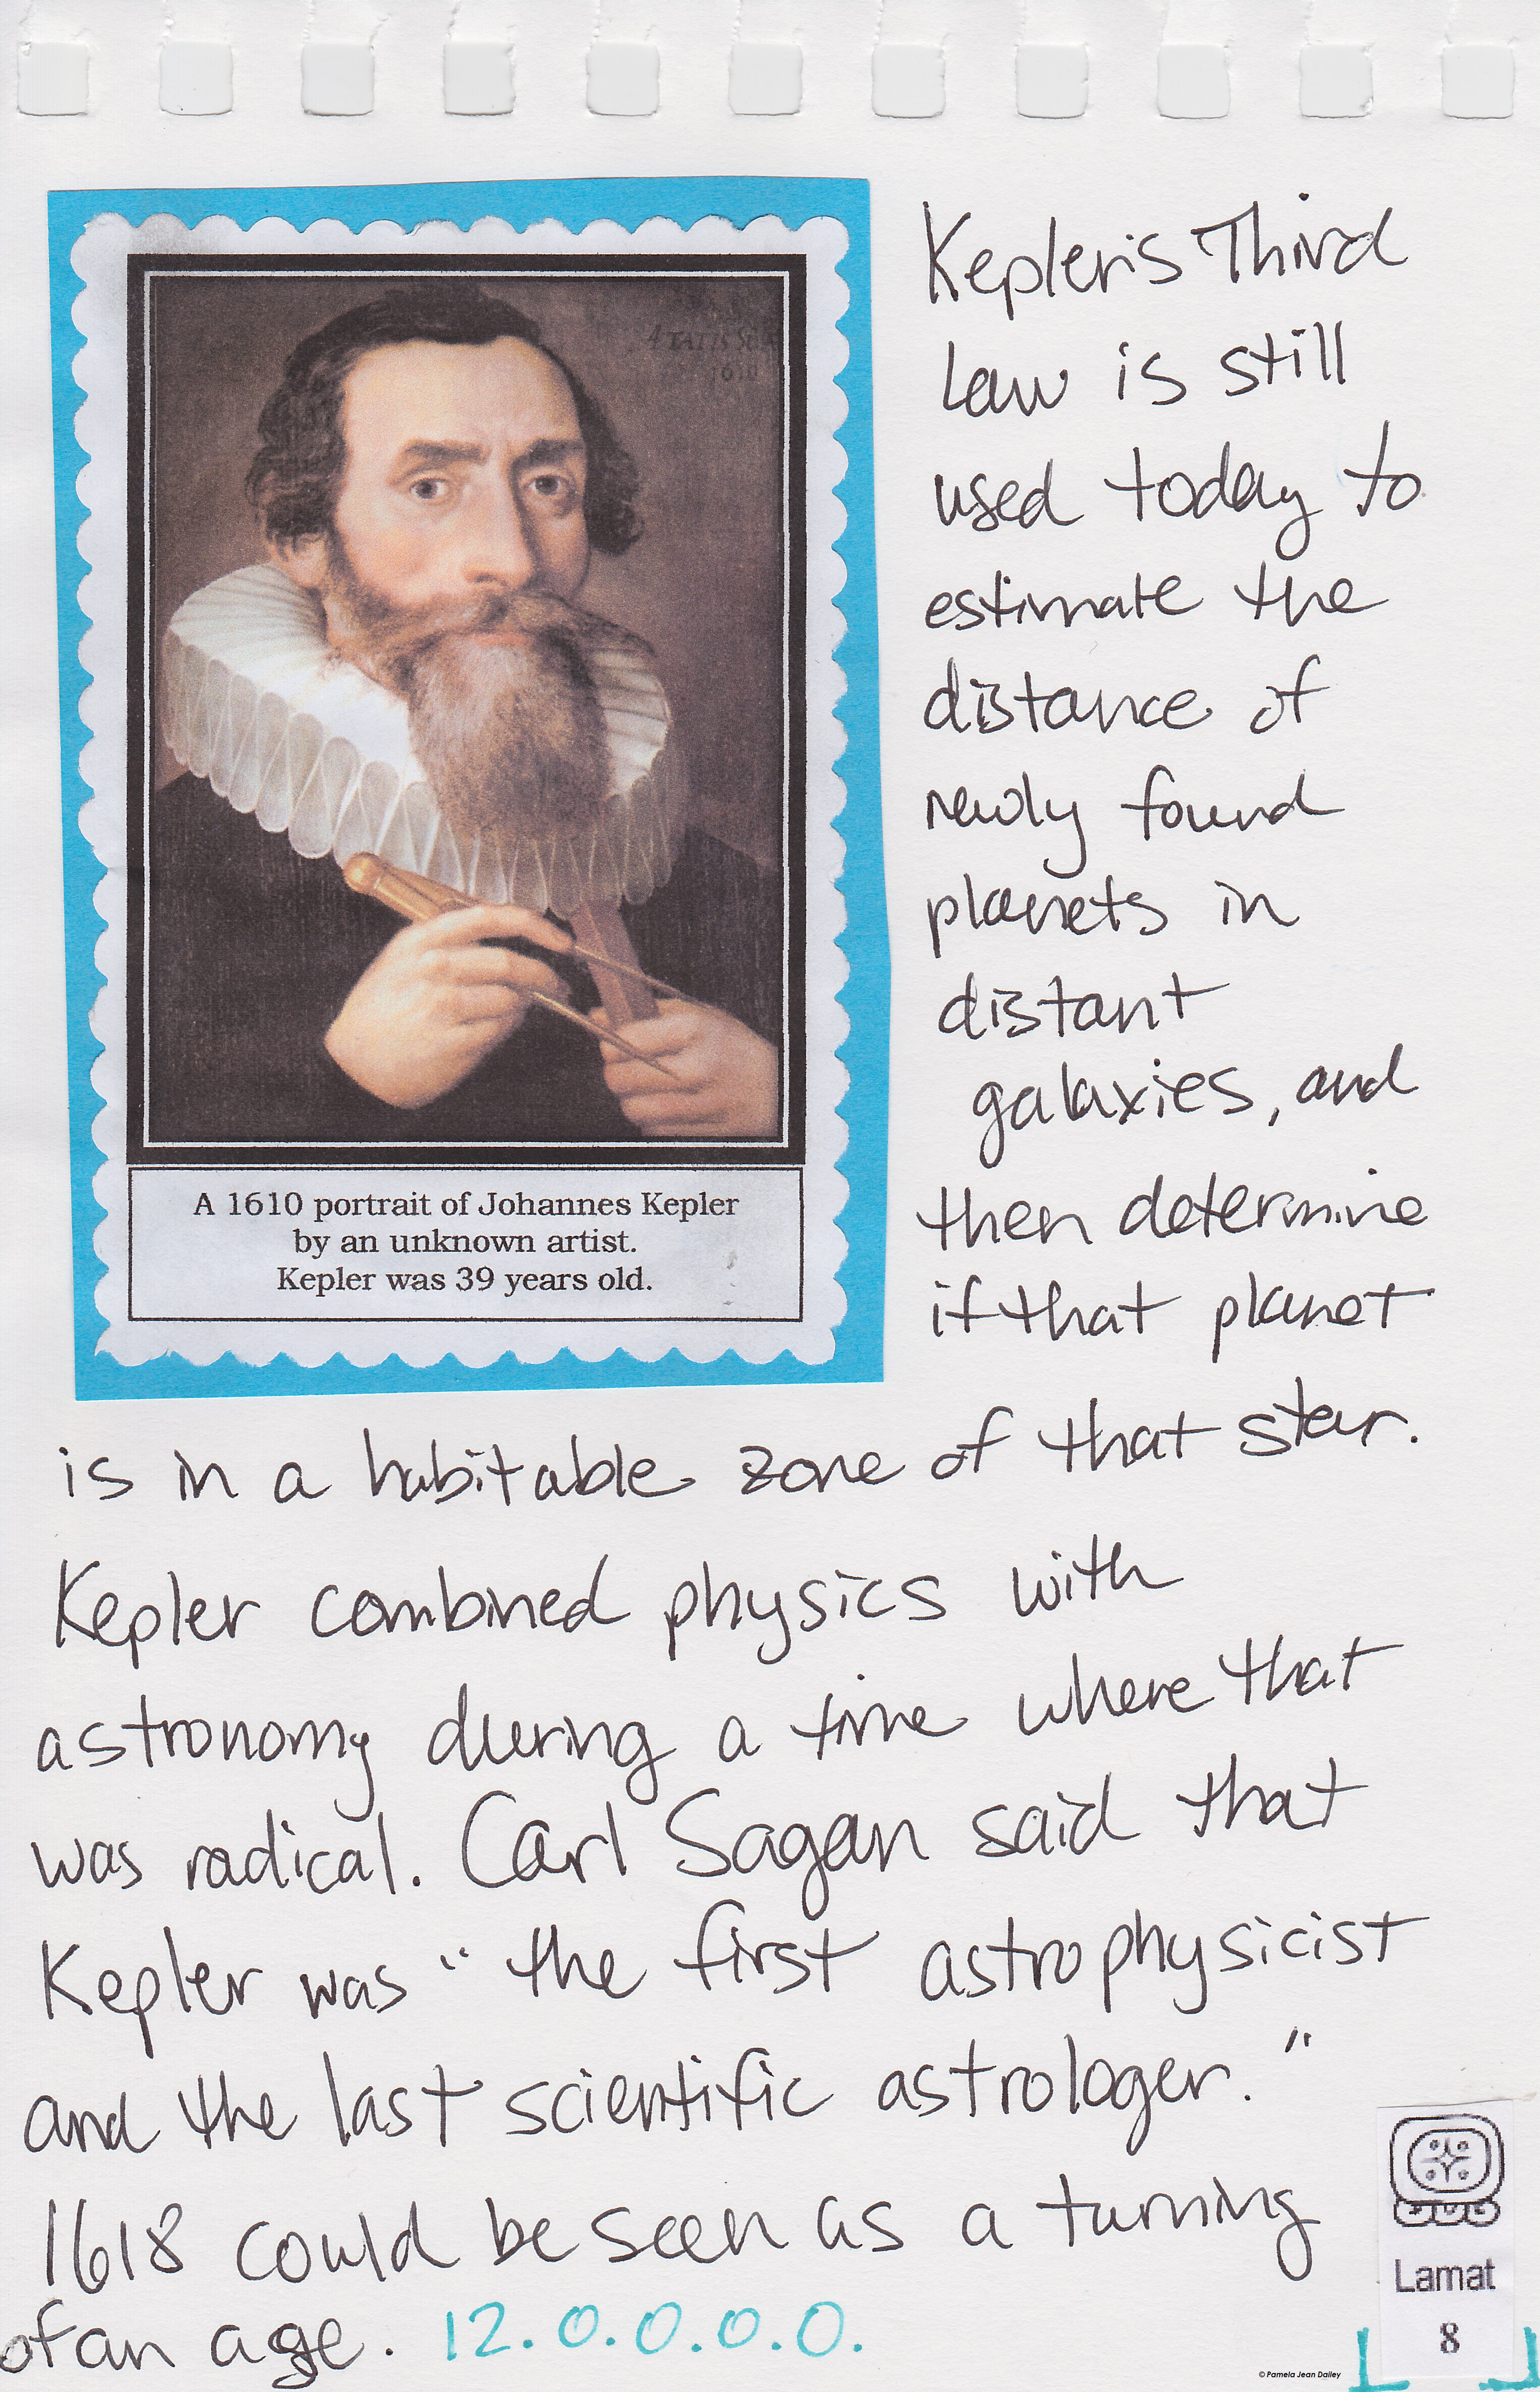 ÆTATIS SUÆ
1610
A 1610 portrait of Johannes Kepler
by an unknown artist.
Kepler was 39 years old.
Kepler's Third
Law is still
used today to
estimate the
distance of
newly found
planets in
distant
galaxies, and
then determine
if that planet
is in a habitable zone of that star.
Kepler combined physics with
astronomy during a time where that
was radical. Carl Sagan said that
Kepler was "the first astrophysicist
and the last scientific astrologer."
1618 could be seen as a turning
of an age. 12.0.0.0.0.
Lamat
8
© Pamela Jean Dailey